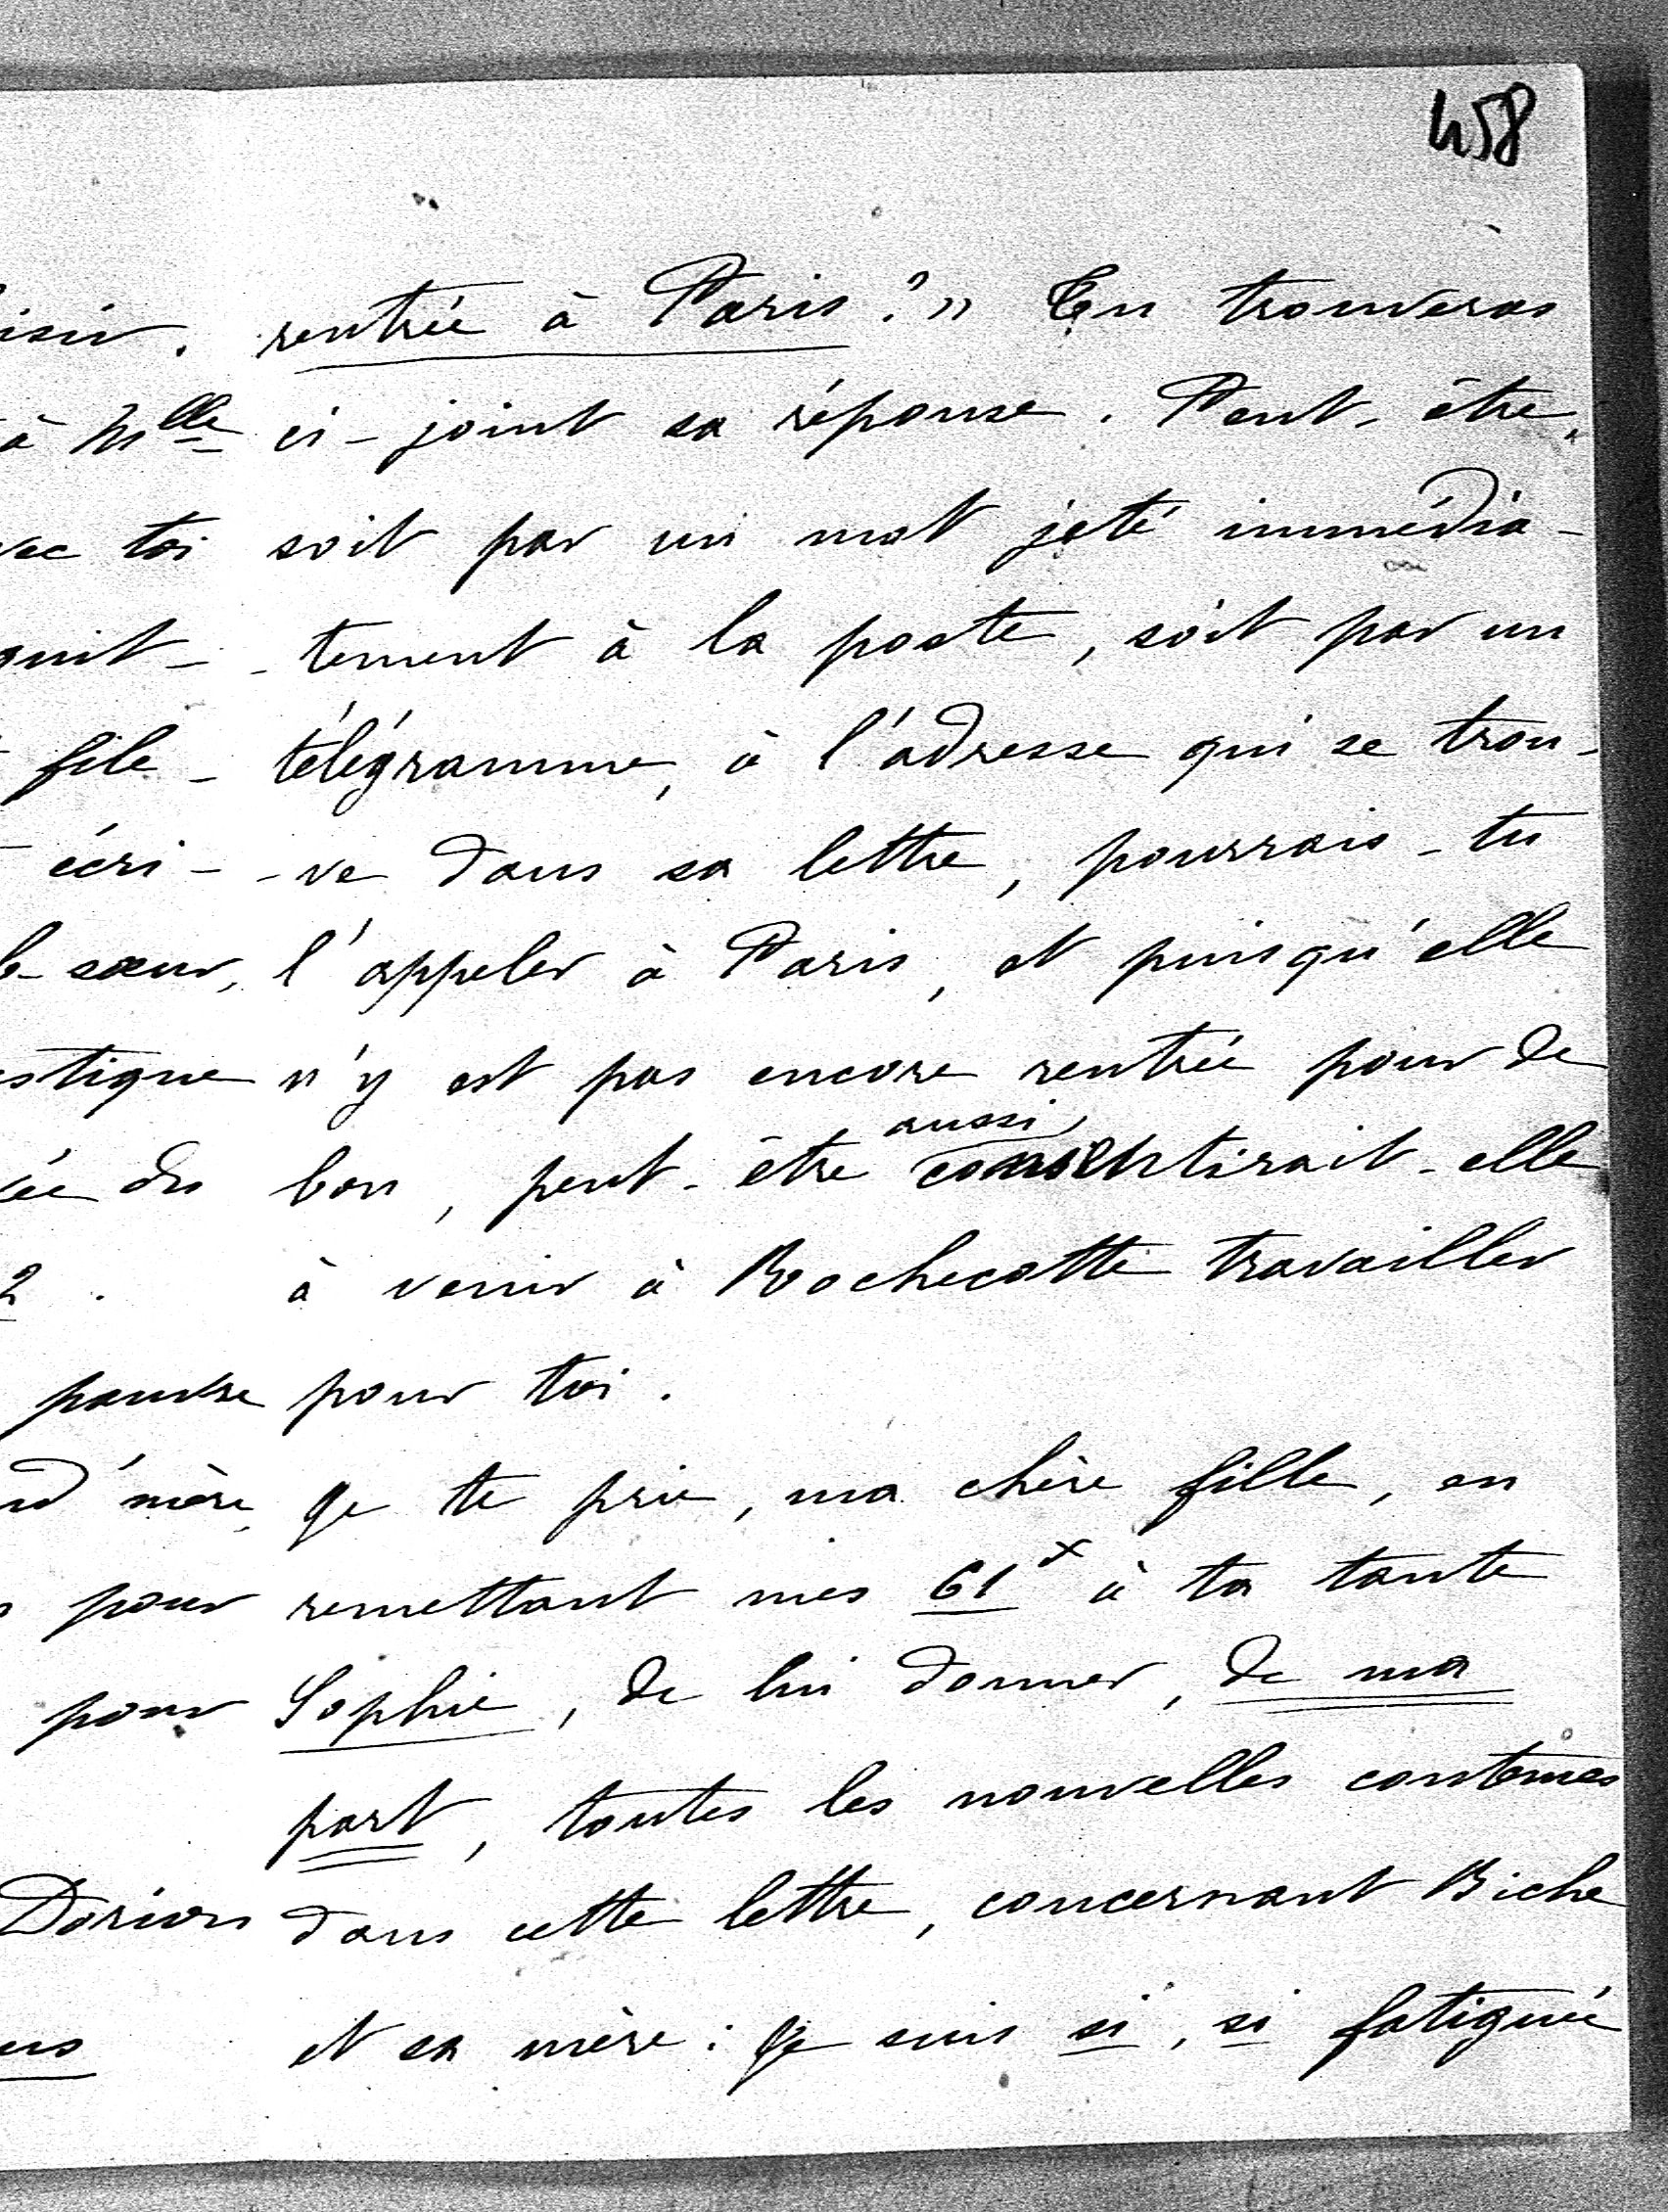 458
rentrée à Paris ? » Tu trouveras
ci-joint sa réponse. Peut-être,
soit par un mot jeté immédia-
-tement à la poste, soit par un
télégramme, à l'adresse qui se trou-
-ve dans sa lettre, pourrais-tu
l'appeler à Paris, et puisqu'elle
n'y est pas encore rentrée pour de
aussi
bon, peut-être consentirait-elle
à venir à Rochecotte travailler
pour toi.
Je te prie, ma chère fille, en
remettant mes 61 x à ta tante
Sophie, de lui donner, de ma
part, toutes les nouvelles contenues
dans cette lettre, concernant Biche
et sa mère : je suis si, si fatiguée
isir.
à Mlle
vec toi
quit-
file-
écri-
le-sœur,
estique
ée du
2.
pauvre
nd'mère,
pour
pour
Dorion
us